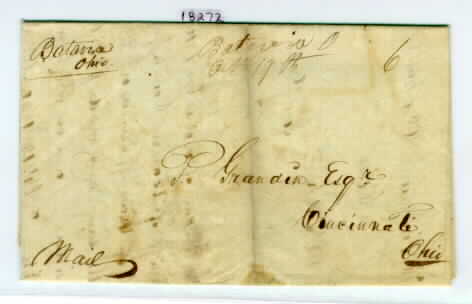 18272
Batavia
Ohio
Batavia O
19th
6
P. Grandin Esqr
Cincinnati
Ohio
Mail